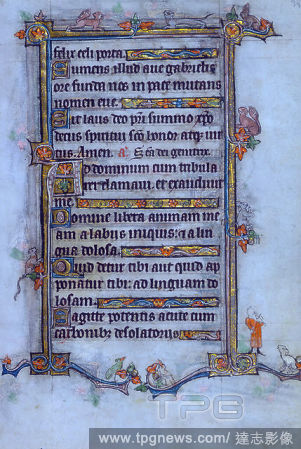 felix celi porta.
Sumens illud aue gabrielis
ore funda nos in pace mutans
nomen eue.
Sit laus deo pri summo xpo
decus spiritui sco honor atqz un
us. Amen. a. Sca dei genitrix.
Ad dominum cum tribula
rer clamaui. et exaudiuit
me
Domine libera animam me
am a labiis iniquis: et a lin
gua dolosa.
Quid detur tibi aut quid ap
ponatur tibi: ad linguam do
losam.
Sagitte potentis acute cum
carbonibz desolatoriis
TPG
www.tpgnews.com/達志影像